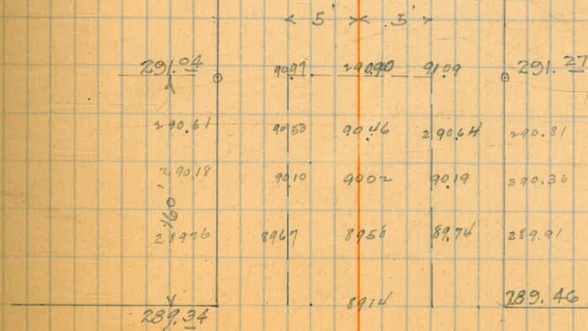 5' 5'
291.04 9097 29090 9109 291.27
290.61 9053 9046 290.64 290.81
290.18 9010 9002 9019 290.36
160'
28976 8967 8958 89.74 289.91
8914 289.46
289.34